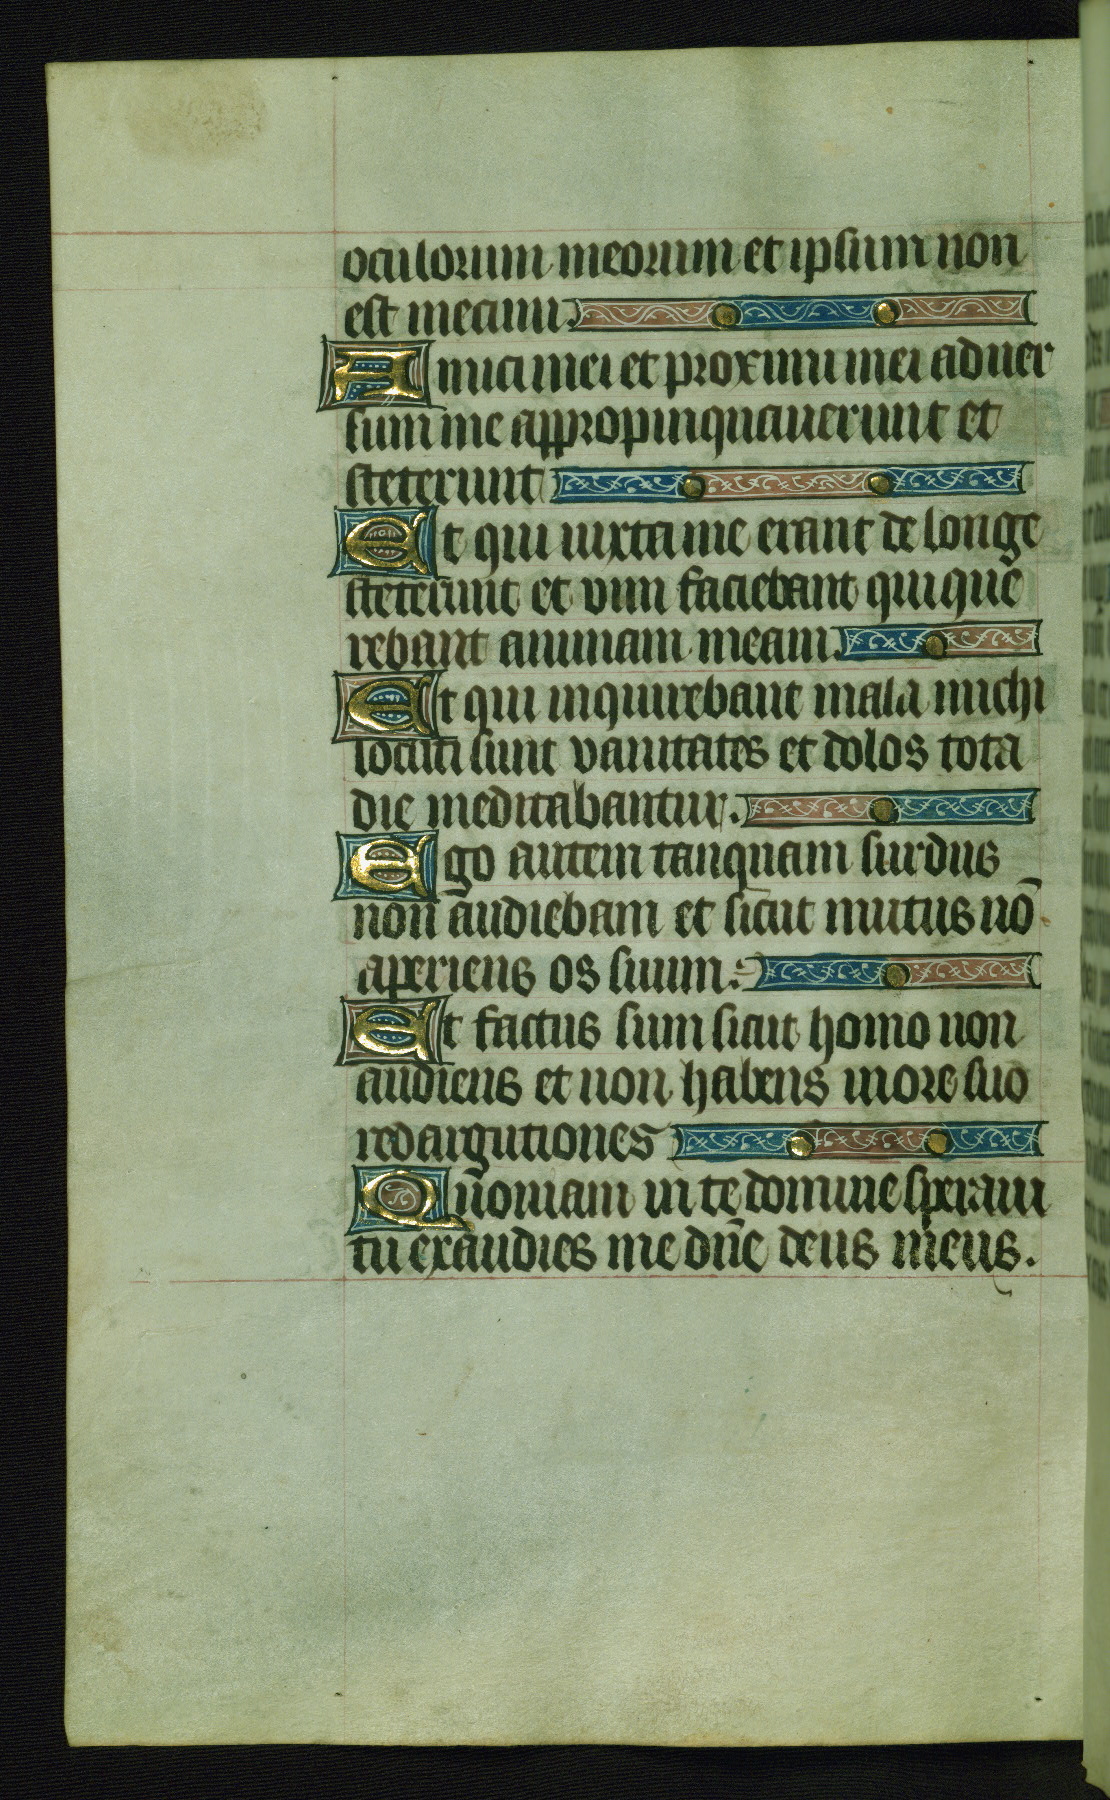 oculorum meorum et ipsum non
est mecum.
Amici mei et proximi mei aduer
sum me appropinquauerunt et
steterunt
Et qui iuxta me erant de longe
steterunt et vim faciebant qui que
rebant animam meam.
Et qui inquirebant mala michi
locuti sunt vanitates et dolos tota
die meditabantur.
Ego autem tanquam surdus
non audiebam et sicut mutus nō
aperiens os suum.
Et factus sum sicut homo non
audiens et non habens in ore suo
redargutiones
Quoniam in te domine speraui
tu exaudies me dn̄e deus meus.